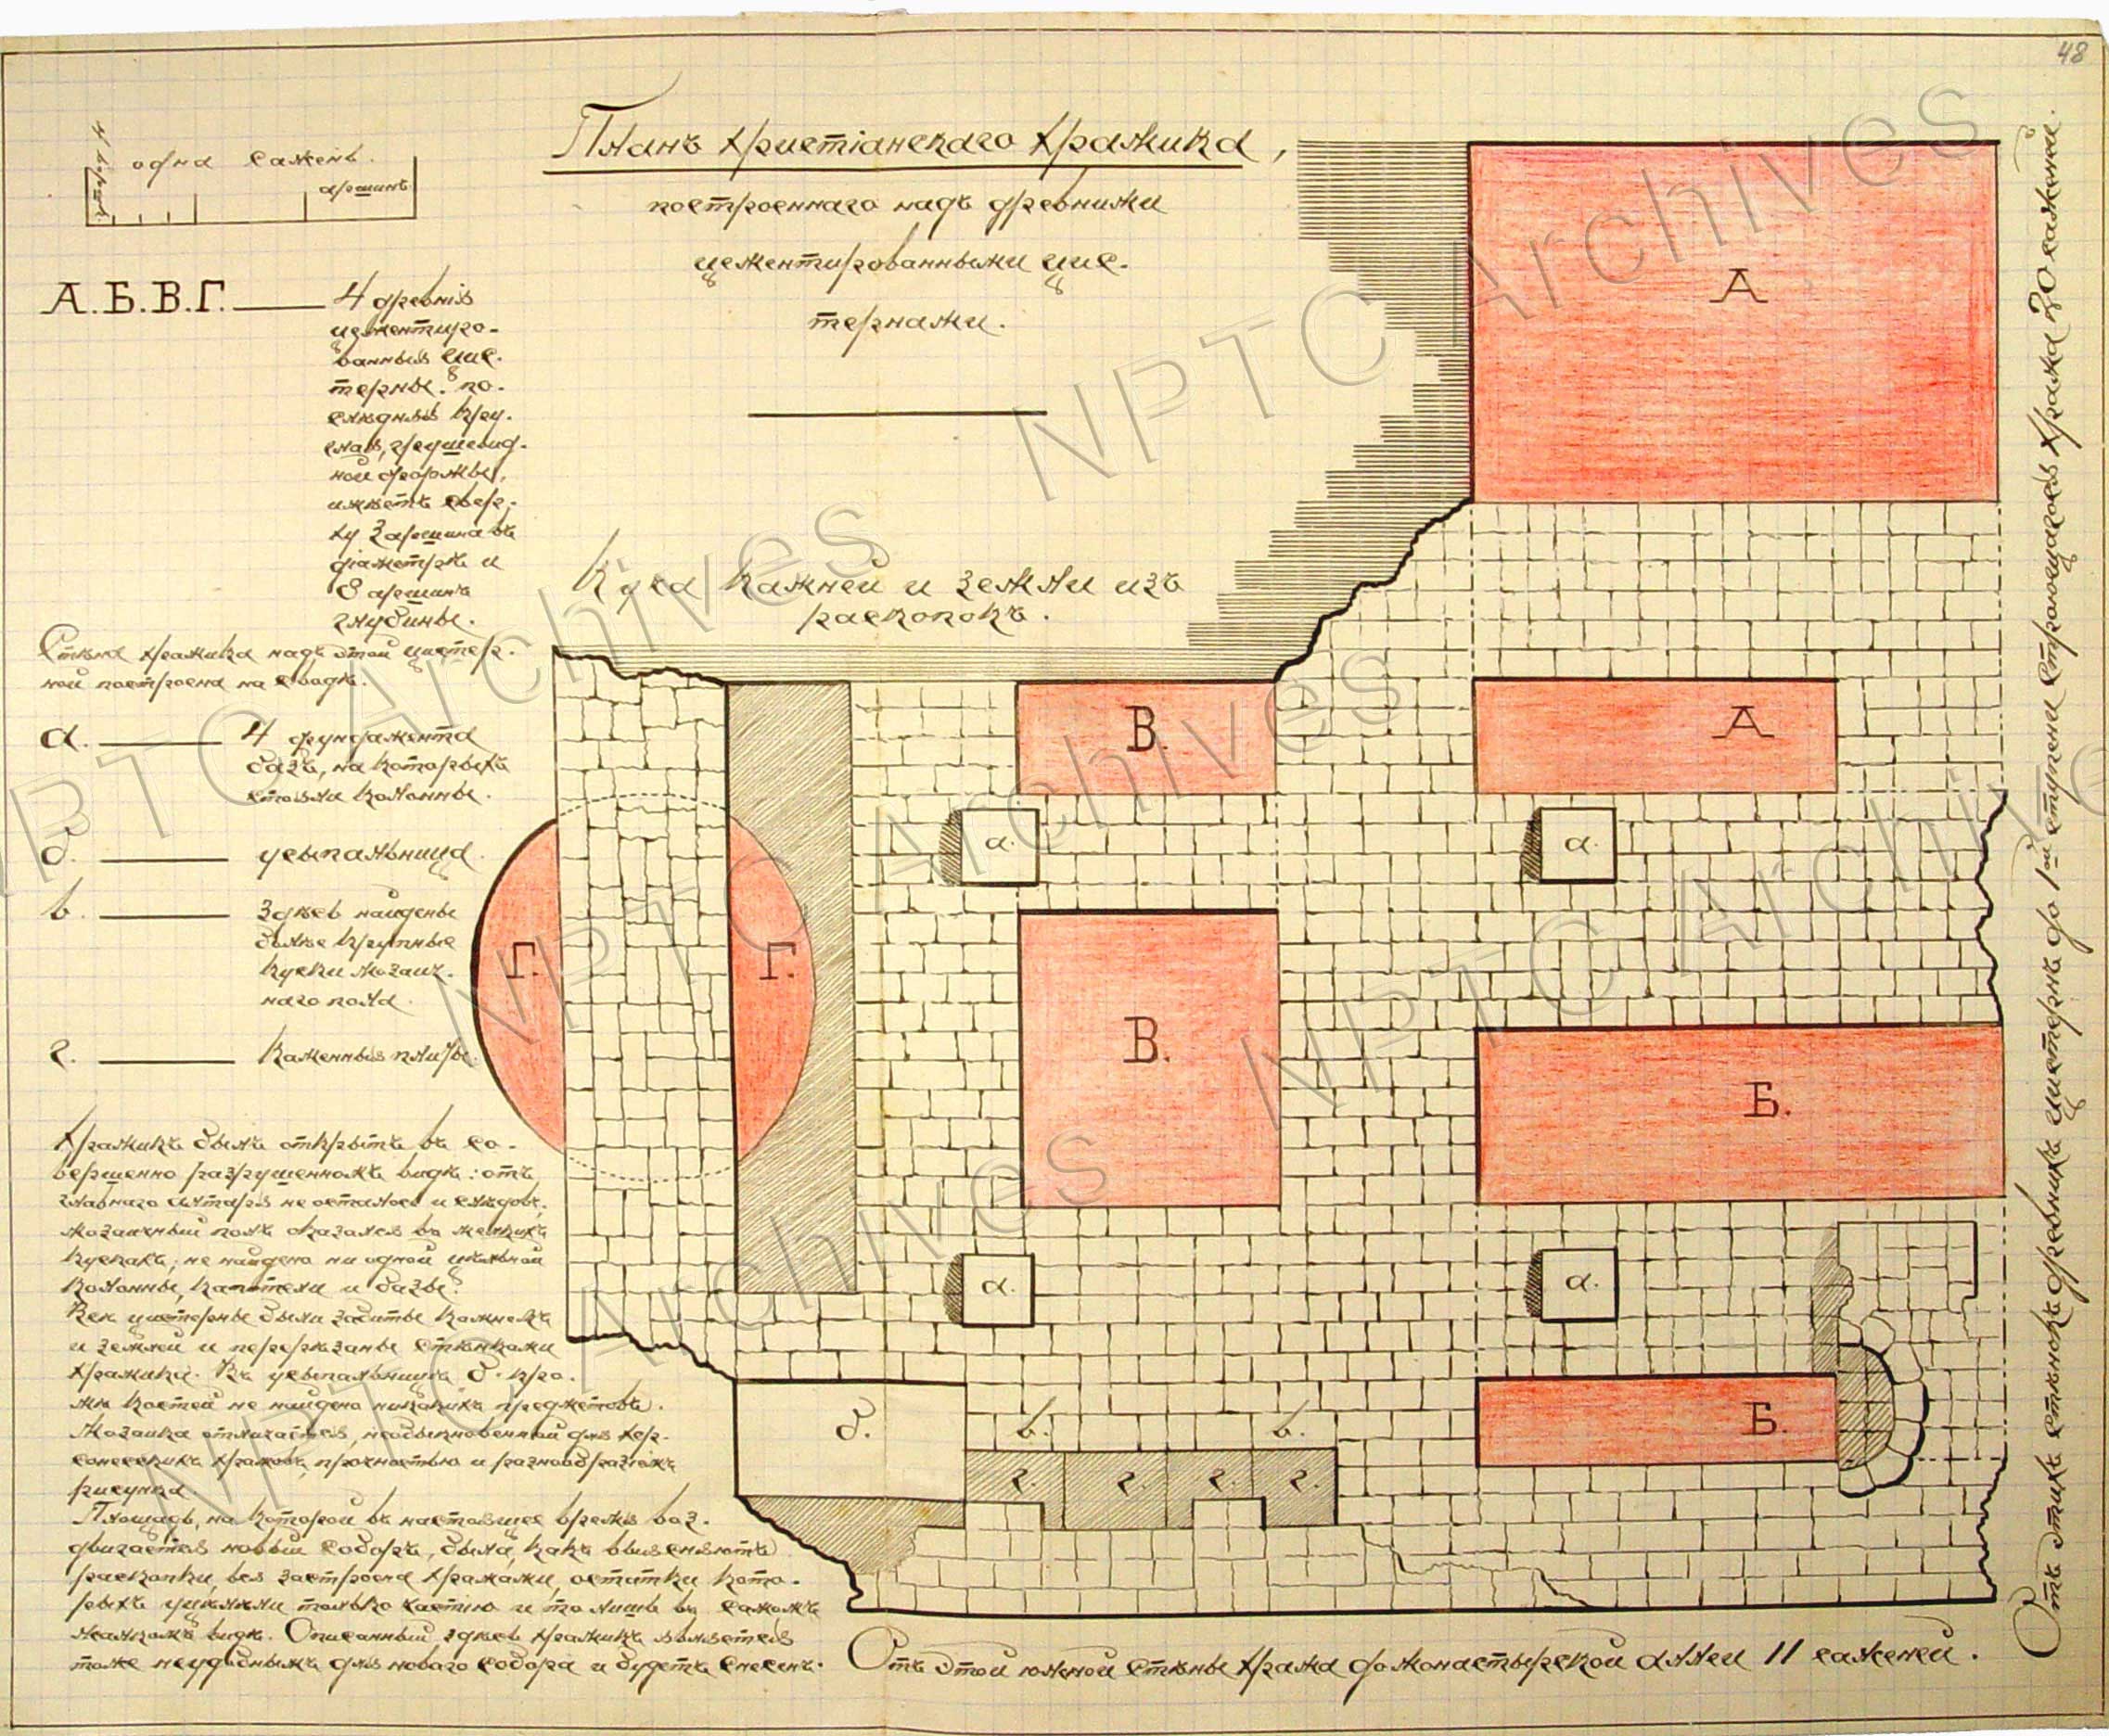 48
Планъ христіанскаго храмика,
построеннаго надъ древними
цементированными цис-
тернами.
одна сажень.
аршинъ.
4 вершк.
А.Б.В.Г. — 4 древнія
цементиро-
ванныя цис-
терны. По-
слѣдняя кру-
глая, грушевид-
ной формы,
имѣетъ свер-
ху 3 аршина въ
діаметрѣ и
8 аршинъ
глубины.
Стѣна храмика надъ этой цистер-
ной построена на сводѣ.
а. — 4 фундамента
базъ, на которыхъ
стояли колонны.
б. — усыпальница.
в. — Здѣсь найдены
болѣе крупные
куски мозаич-
наго пола.
г. — Каменныя плиты.
Храмикъ былъ открытъ въ со-
вершенно разрушенномъ видѣ: отъ
главнаго алтаря не осталось и слѣдовъ,
мозаичный полъ оказался въ мелкихъ
кускахъ; не найдено ни одной цѣльной
колонны, капители и базы.
Всѣ цистерны были забиты камнемъ
и землей и перерѣзаны стѣнками
храмика. Въ усыпальницѣ б. кро-
мѣ костей не найдено никакихъ предметовъ.
Мозаика отличается, необыкновенной для хер-
сонесскихъ храмовъ, прочностью и разнообразіемъ
рисунка.
Площадь, на которой въ настоящее время воз-
двигается новый соборъ, была, какъ выясняютъ
раскопки, вся застроена храмами, остатки кото-
рыхъ уцѣлѣли только частію и то лишь въ самомъ
жалкомъ видѣ. Описанный здѣсь храмикъ является
тоже неудобнымъ для новаго собора и будетъ снесенъ.
Куча камней и земли изъ
раскопокъ.
А
А
В.
а.
а.
Г.
Г.
В.
Б.
а.
а.
б.
в.
в.
Б.
г.
г.
г.
г.
Отъ этой южной стѣны храма до монастырской аллеи 11 саженей.
Отъ этихъ стѣнокъ древнихъ цистернъ до 1-ой ступени строющагося храма 20 саженей.
NPTC Archives
NPTC Archives
NPTC Archives
NPTC Archives
NPTC Archives
NPTC Archives